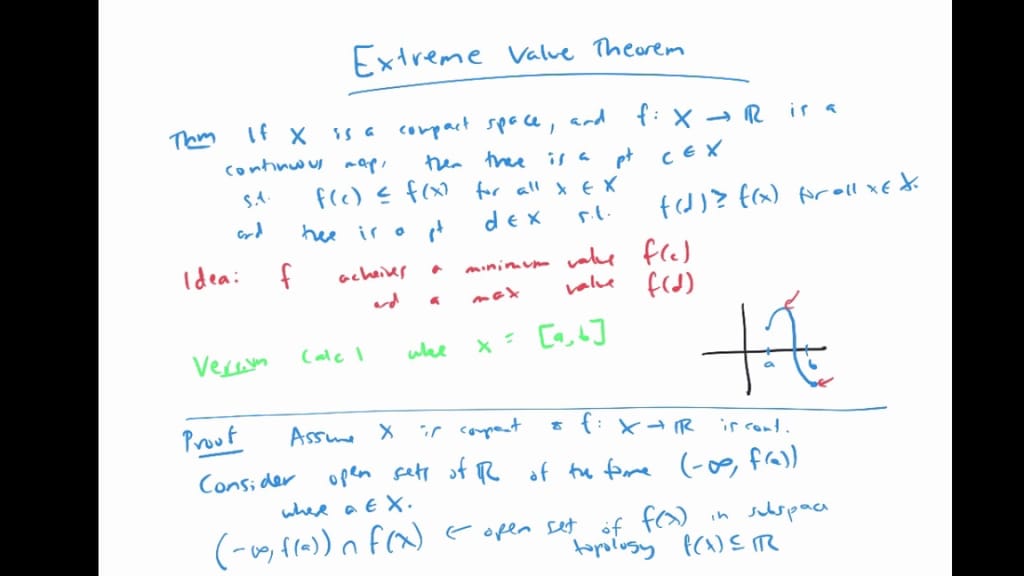 Extreme Value Theorem
Thm If X is a compact space, and f: X → ℝ is a
continuous map, then there is a pt c ∈ X
s.t. f(c) ≤ f(x) for all x ∈ X
and there is a pt d ∈ X s.t. f(d) ≥ f(x) for all x ∈ X.
Idea: f acheives a minimum value f(c)
and a max value f(d)
Version Calc 1 where X = [a,b]
a b
Proof Assume X is compact & f: X → ℝ is cont.
Consider open sets of ℝ of the form (-∞, f(a))
where a ∈ X.
(-∞, f(a)) ∩ f(X) ← open set of f(X) in subspace
topology f(X) ⊆ ℝ